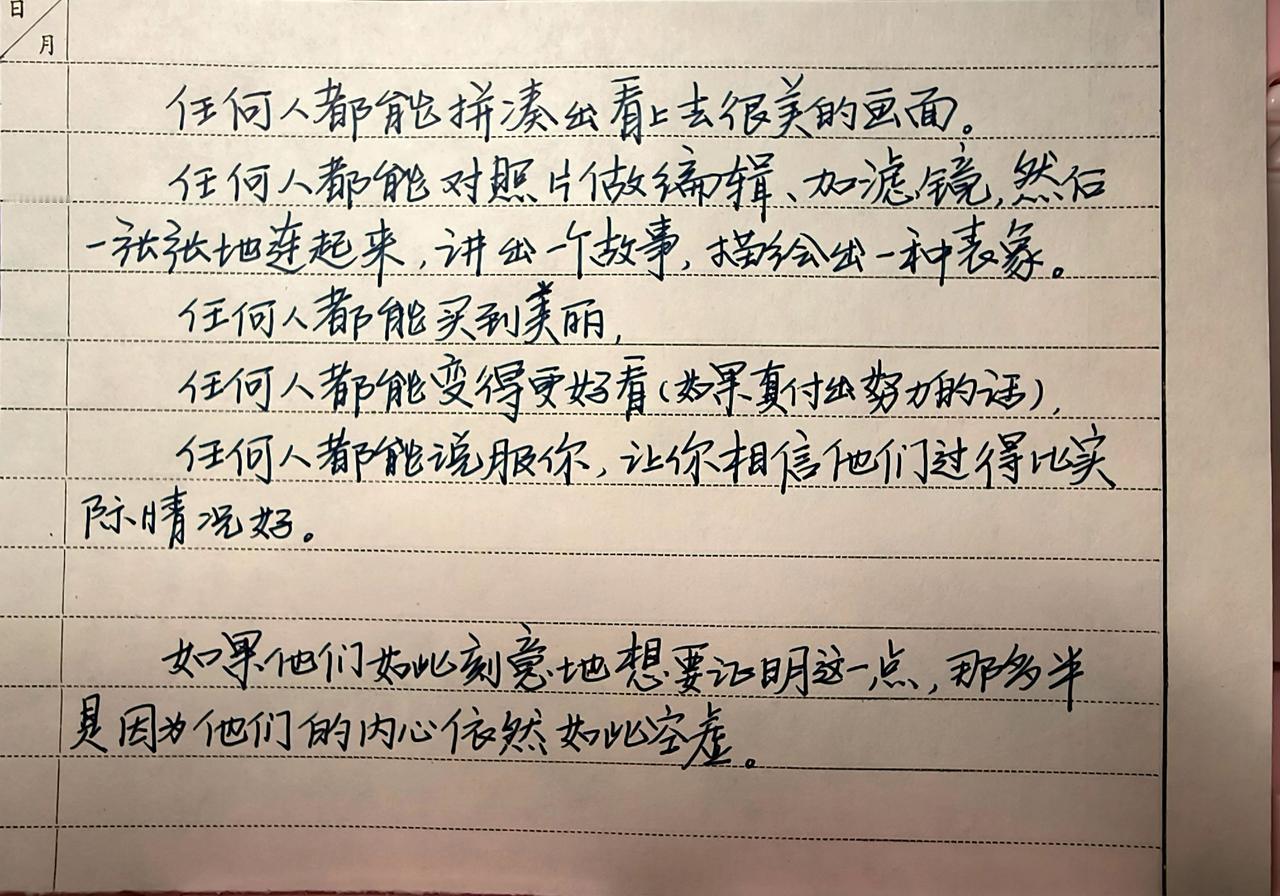 日
月
任何人都能拼凑出看上去很美的画面。
任何人都能对照片做编辑、加滤镜,然后
一张张地连起来,讲出一个故事,描绘出一种表象。
任何人都能买到美丽,
任何人都能变得更好看(如果真付出努力的话),
任何人都能说服你,让你相信他们过得比实
际情况好。
如果他们如此刻意地想要证明这一点,那多半
是因为他们的内心依然如此空虚。